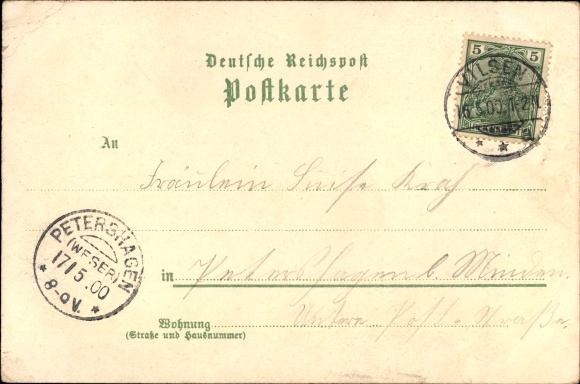 Deutsche Reichspost
Postkarte
5 5
VILSEN
5.00. 1-2N
An
Fräulein Luise
PETERSHAGEN
(WESER)
17/5.00
8-9V.
in Petershagen b. Minden.
Untere Post-Straße.
Wohnung
(Straße und Hausnummer)